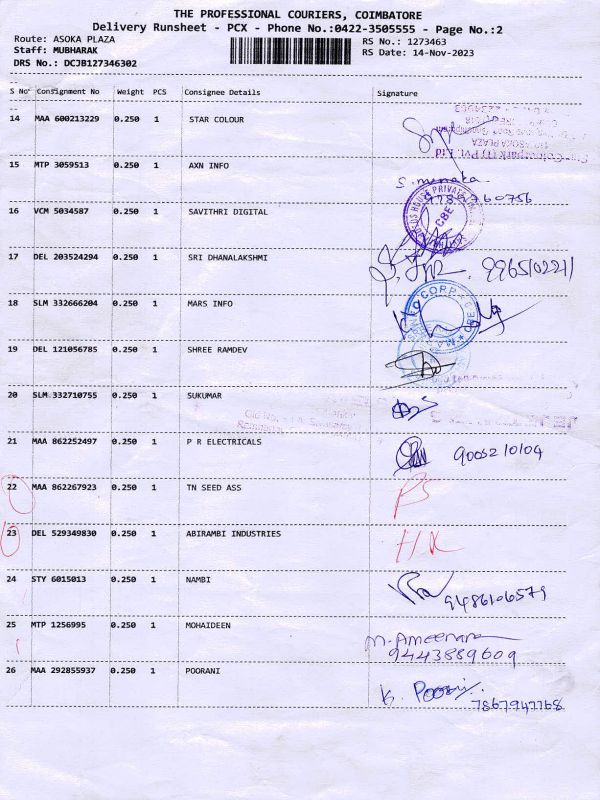 THE PROFESSIONAL COURIERS, COIMBATORE
Delivery Runsheet - PCX - Phone No.:0422-3505555 - Page No.:2
Route: ASOKA PLAZA
RS No.: 1273463
Staff: MUBHARAK
RS Date: 14-Nov-2023
DRS No.: DCJB127346302
S No Consignment No Weight PCS Consignee Details Signature
14 MAA 600213229 0.250 1 STAR COLOUR
15 MTP 3059513 0.250 1 AXN INFO
16 VCM 5034587 0.250 1 SAVITHRI DIGITAL
17 DEL 203524294 0.250 1 SRI DHANALAKSHMI
18 SLM 332666204 0.250 1 MARS INFO
19 DEL 121056785 0.250 1 SHREE RAMDEV
20 SLM 332710755 0.250 1 SUKUMAR
21 MAA 862252497 0.250 1 P R ELECTRICALS
22 MAA 862267923 0.250 1 TN SEED ASS
23 DEL 529349830 0.250 1 ABIRAMBI INDUSTRIES
24 STY 6015013 0.250 1 NAMBI
9486106579
25 MTP 1256995 0.250 1 MOHAIDEEN
9443889609
26 MAA 292855937 0.250 1 POORANI
7867947768